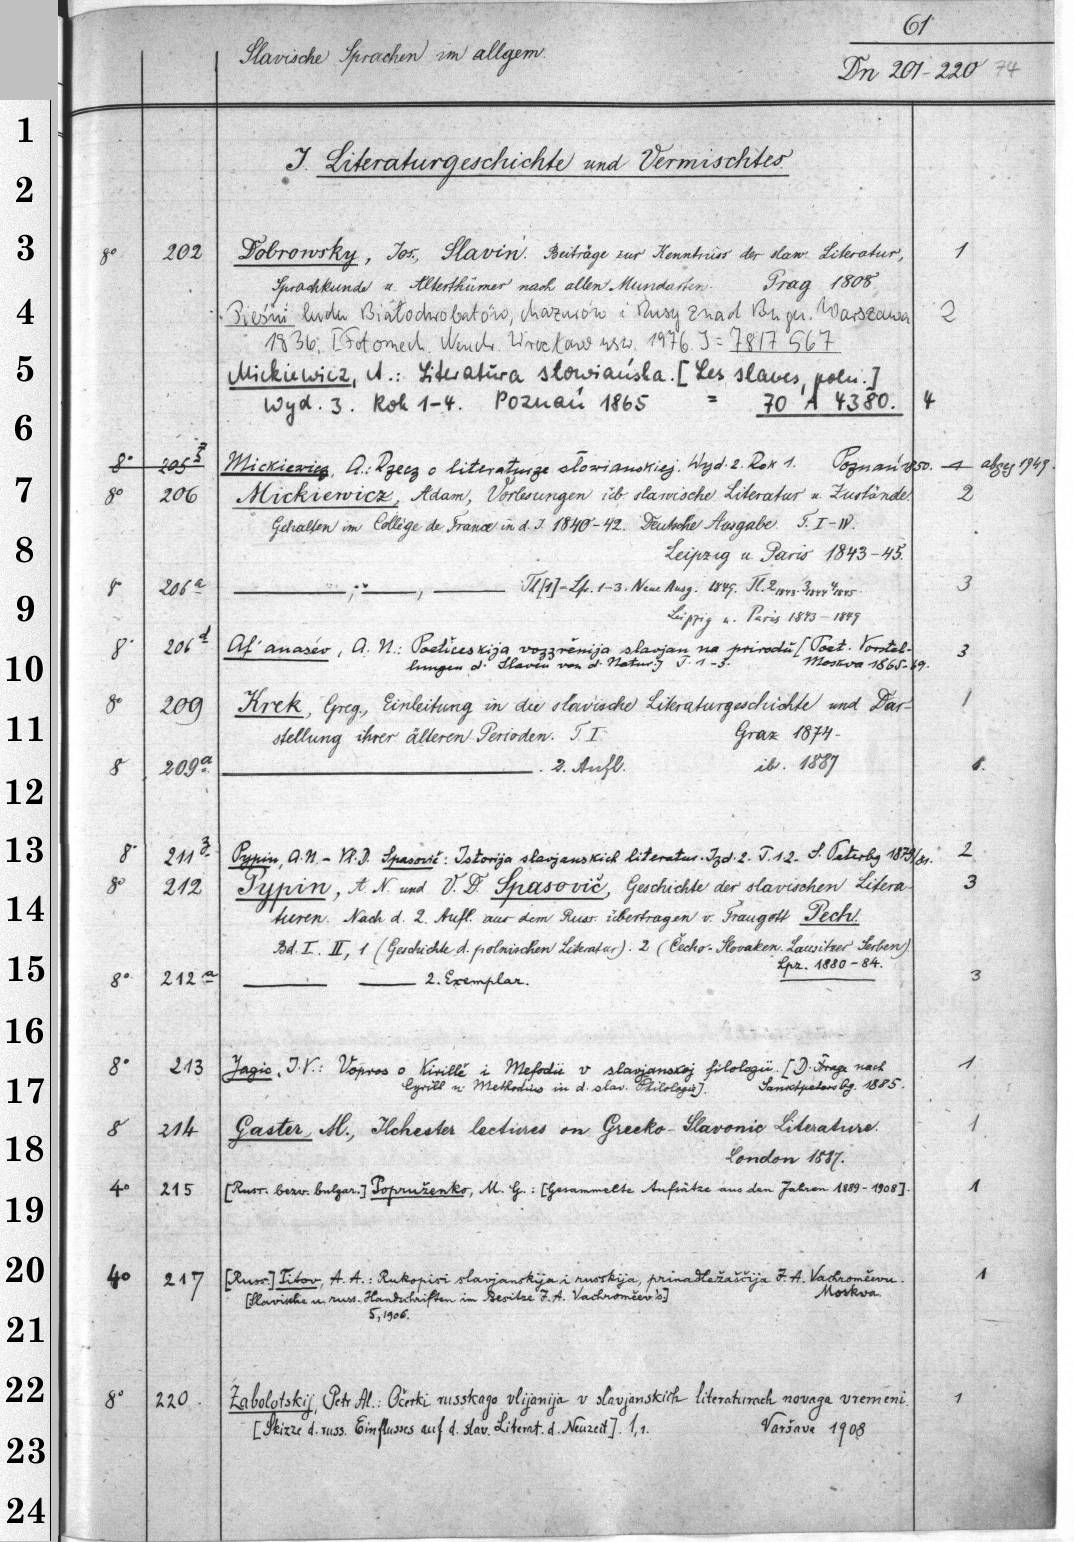 61
Slavische Sprachen im allgem.
Dn 201-220 74
I. Literaturgeschichte und Vermischtes
1
2
3
8° 202 Dobrowsky, Jos., Slavin. Beiträge zur Kenntniss der slaw. Literatur, 1
Sprachkunde u. Alterthümer nach allen Mundarten. Prag 1808
4
Pieśni ludu Białochrobatów, Mazurów i Rusy znad Bugu. Warszawa 2
1836. [Fotomech. Neudr. Wrocław usw. 1976.] = 7817 567
5
Mickiewicz, A.: Literatura słowiańska. [Les slaves, poln.]
Wyd. 3. Rok 1-4. Poznań 1865 = 70 A 4380. 4
6
8° 205 z Mickiewicz, A.: Rzecz o literaturze słowianskiej. Wyd. 2. Rok 1. Poznań 1850. 1 abgeg 1949.
7
8° 206 Mickiewicz, Adam, Vorlesungen üb. slawische Literatur u. Zustände. 2
Gehalten im Collège de France in d. J. 1840-42. Deutsche Ausgabe. T. I-IV.
8
Leipzig u. Paris 1843-45.
8° 206a Tl [1]-Lfr. 1-3. Neue Ausg. 1849. Tl. 2 1843. 3 1844 4 1845 3
9
Leipzig u. Paris 1843-1849
8° 206d Af'anasév, A. N.: Poetičeskija vozzrěnija slavjan na prirodu [Poet. Vorstel- 3
10
lungen d. Slaven von d. Natur.] T. 1-3. Moskva 1865-69.
8° 209 Krek, Greg., Einleitung in die slavische Literaturgeschichte und Dar- 1
11
stellung ihrer älteren Perioden. T I Graz 1874-
8 209a. 2. Aufl. ib. 1887 1.
12
13
8° 211 z Pypin, A. N. - Vl. D. Spasovič: Istorija slavjanskich literatur. Izd. 2. T. 1.2. S. Peterbg 1879/81. 2
8° 212 Pypin, A. N. und V. D. Spasovič, Geschichte der slavischen Litera- 3
14
turen. Nach d. 2. Aufl. aus dem Russ. übertragen v. Traugott Pech.
Bd. I. II, 1 (Geschichte d. polnischen Literatur). 2 (Čecho-Slovaken. Lausitzer Serben)
15
Lpz. 1880-84.
8° 212a 2. Exemplar. 3
16
8° 213 Jagic, I. V.: Vopros o Kirillě i Mefodii v slavjanskoj filologii. [D. Frage nach 1
17
Cyrill u. Methodius in d. slav. Philologie]. Sanktpetersbg. 1885.
8 214 Gaster, M., Ilchester lectures on Greeko-Slavonic Literature. 1
18
London 1887.
4° 215 [Russ. bezw. bulgar.] Popruženko, M. G.: [Gesammelte Aufsätze aus den Jahren 1889-1908]. 1
19
20
4° 217 [Russ.] Titov, A. A.: Rukopisi slavjanskija i russkija, prinadležaščija I. A. Vachroměevu. 1
[Slavische u. russ. Handschriften im Besitze I. A. Vachroměev's] Moskva.
5, 1906.
21
22
8° 220. Zabolotskij, Petr Al.: Očerki russkago vlijanija v slavjanskich literaturach novago vremeni. 1
[Skizze d. russ. Einflusses auf d. slav. Literat. d. Neuzeit]. 1,1. Varšava 1908
23
24